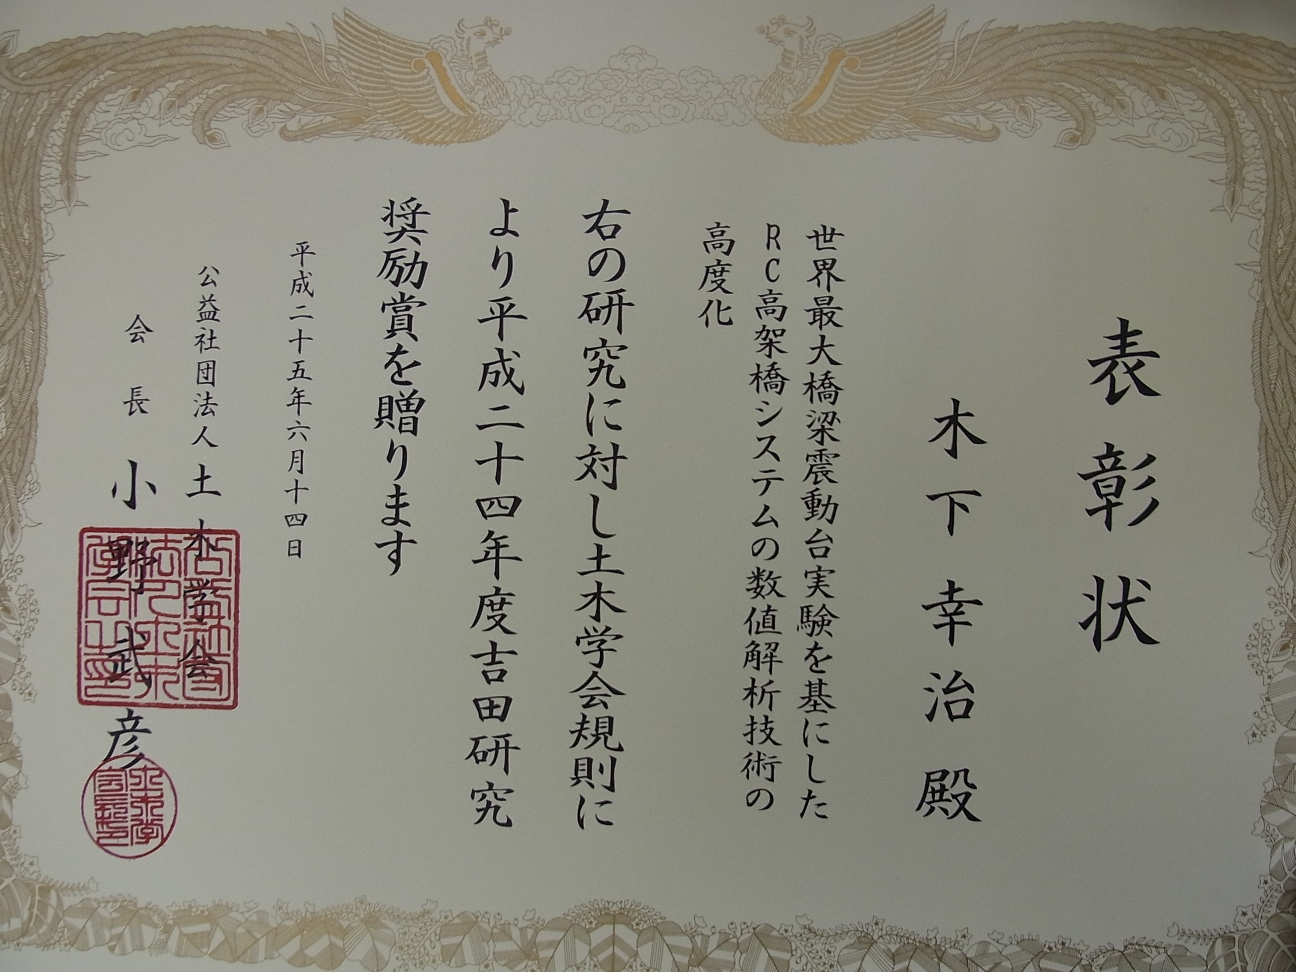 表彰状
木下幸治殿
世界最大橋梁震動台実験を基にした
RC高架橋システムの数値解析技術の
高度化
右の研究に対し土木学会規則に
より平成二十四年度吉田研究
奨励賞を贈ります
平成二十五年六月十四日
公益社団法人土木学会
会長小野武彦